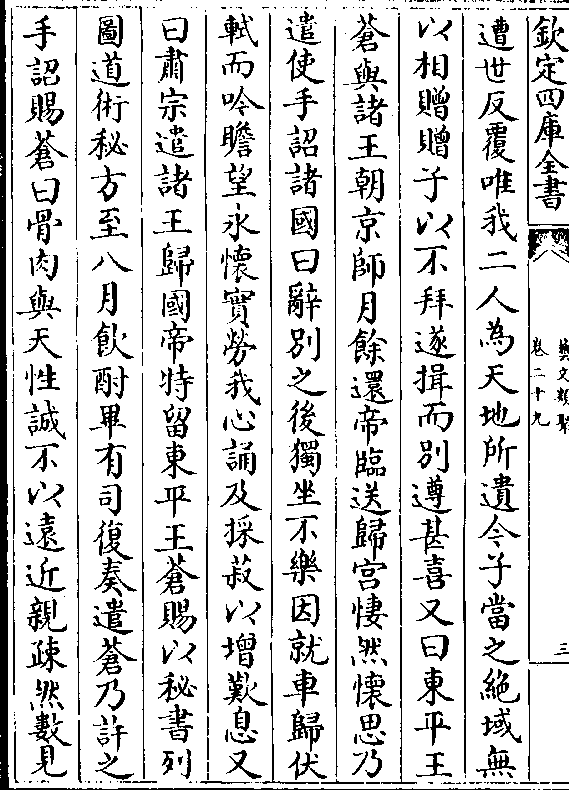 欽定四庫全書
藝文類聚
卷二十九
三
遭世反覆唯我二人為天地所遺今子當之絶域無
以相贈贈子以不拜遂揖而别遵甚喜又曰東平王
蒼與諸王朝京師月餘還帝臨送歸宫悽然懷思乃
遣使手詔諸國曰辭别之後獨坐不樂因就車歸伏
軾而吟瞻望永懷實勞我心誦及採菽以增歎息又
曰肅宗遣諸王歸國帝特留東平王蒼賜以秘書列
圖道術秘方至八月飲酎畢有司復奏遣蒼乃許之
手詔賜蒼曰骨肉與天性誠不以遠近親疎然數見